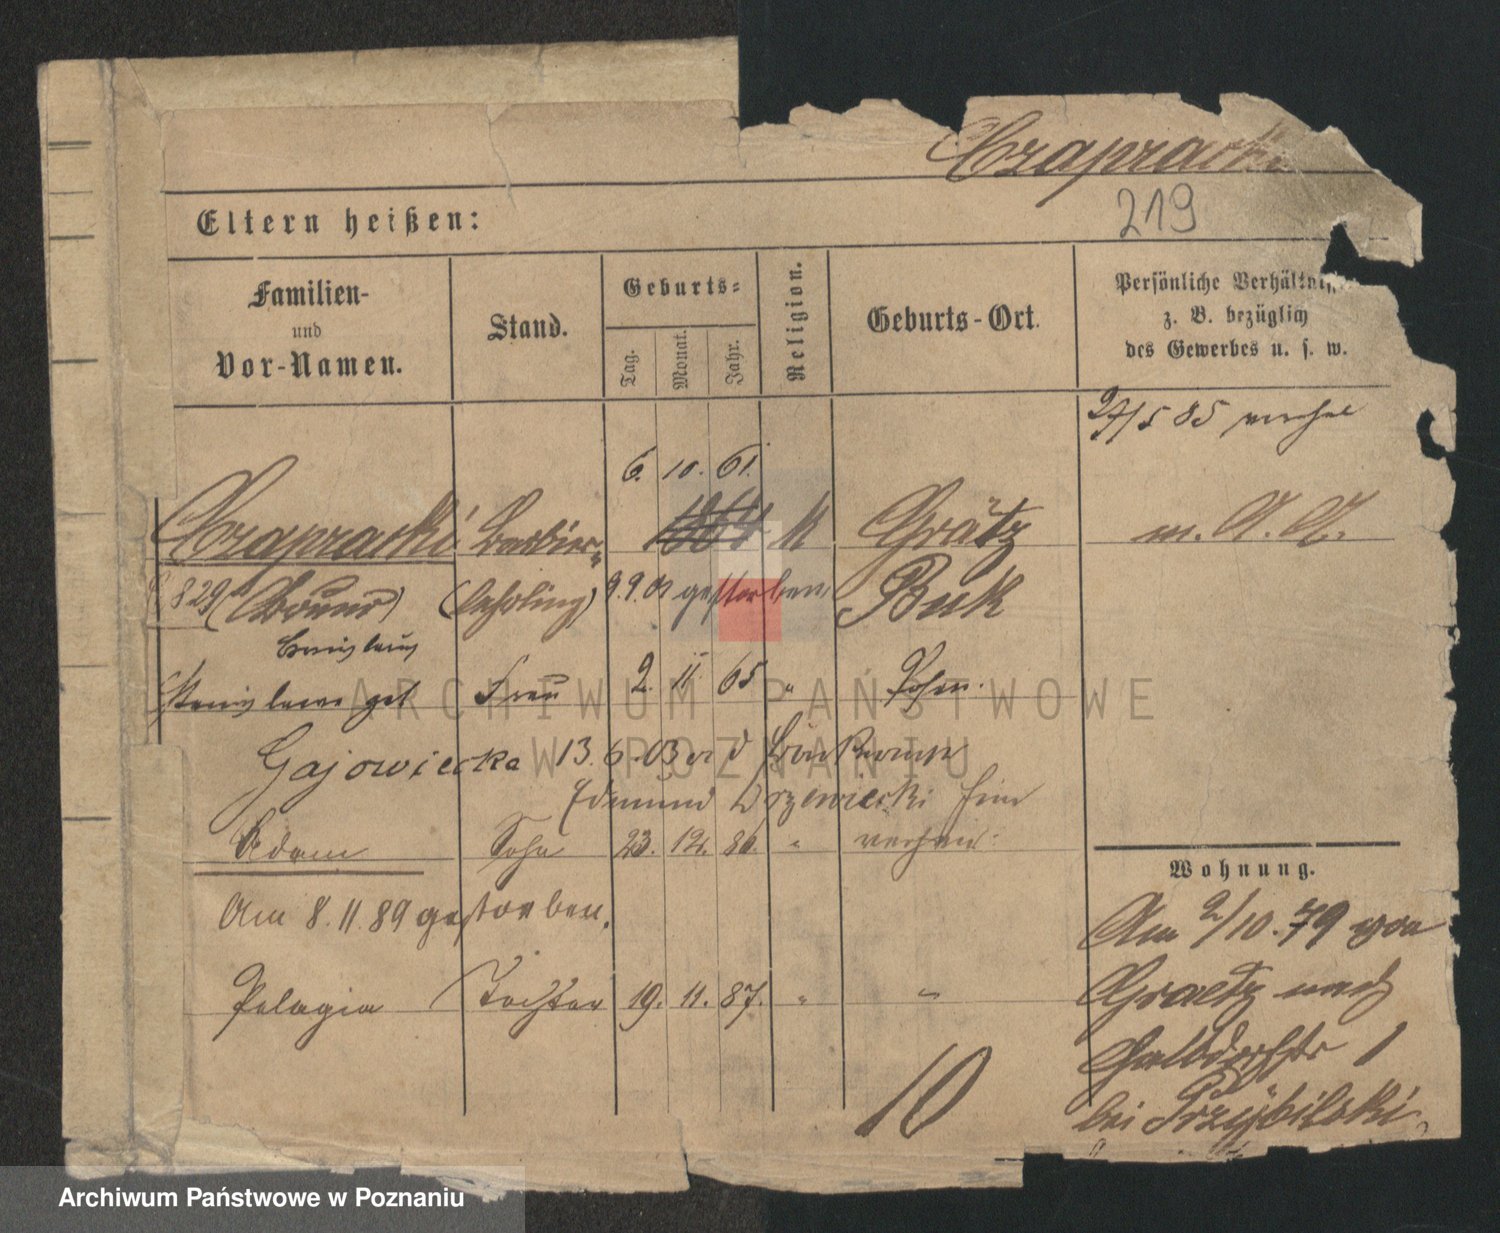 Czapracki
219
Eltern heißen:
Familien-
und
Vor-Namen.
Stand.
Geburts-
Tag.
Monat.
Jahr.
Religion.
Geburts-Ort.
Persönliche Verhältnisse
z. B. bezüglich
des Gewerbes u. s. w.
27/5 85
6. 10. 61.
Czapracki Barbier- 1864 k Grätz
829 (Lehrling) 9.9.01 gestorben Buk
Bronislaus
Stanislawa geb Frau 2. 11. 65 " Posen.
Gajowiecka 13.6.03
Edmund Drzewiecki
Adam Sohn 23. 12. 86. "
Am 8.11.89 gestorben.
Pelagia Tochter 19. 11. 87. " "
Wohnung.
Am 2/10.79 von
Graetz nach
Halbdorfstr 1
bei Przybilski.
10
ARCHIWUM PAŃSTWOWE
W POZNANIU
Archiwum Państwowe w Poznaniu